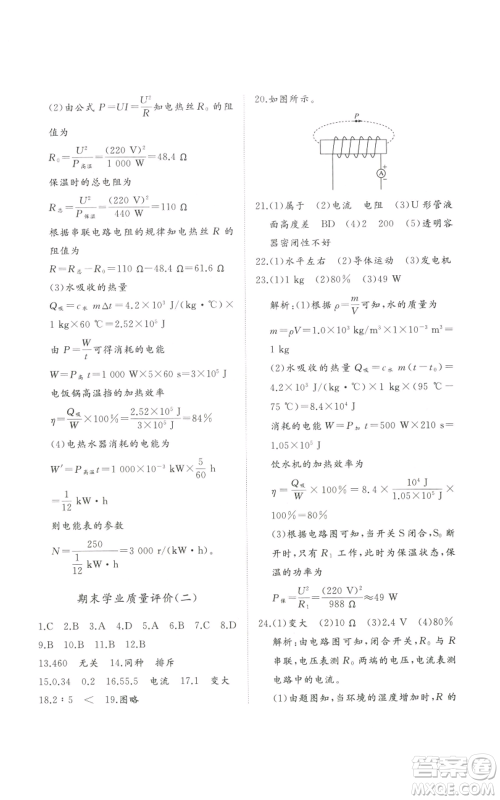 (2)由公式 P=UI=U²/R 知电热丝 R₀ 的阻
值为
R₀=U²/P高温=(220 V)²/1 000 W=48.4 Ω
保温时的总电阻为
R总=U²/P保温=(220 V)²/440 W=110 Ω
根据串联电路电阻的规律知电热丝 R 的
阻值为
R=R总-R₀=110 Ω-48.4 Ω=61.6 Ω
(3)水吸收的热量
Q吸=c水 mΔt=4.2×10³ J/(kg·℃)×
1 kg×60 ℃=2.52×10⁵ J
由 P=W/t 可得消耗的电能
W=P高温 t=1 000 W×5×60 s=3×10⁵ J
电饭锅高温挡的加热效率
η=Q吸/W×100%=2.52×10⁵ J/3×10⁵ J=84%
(4)电热水器消耗的电能为
W′=P高温 t=1 000×10⁻³ kW×5/60 h=
1/12 kW·h
则电能表的参数
N=250/(1/12 kW·h)=3 000 r/(kW·h)
期末学业质量评价(二)
1.C 2.B 3.A 4.D 5.D 6.D
7.C 8.D 9.B 10.B 11.B 12.B
13.460 无关 14.同种 排斥
15.0.34 0.2 16.55.5 电流 17.1 变大
18.2∶5 < 19.图略
20.如图所示。
P
A
21.(1)属于 (2)电流 电阻 (3)U 形管液
面高度差 BD (4)2 200 (5)透明容
器密闭性不好
22.(1)水平左右 (2)导体运动 (3)发电机
23.(1)1 kg (2)80% (3)49 W
解析:(1)根据 ρ=m/V 可知,水的质量为
m=ρV=1.0×10³ kg/m³×1×10⁻³ m³=
1 kg
(2)水吸收的热量 Q吸=c水 m(t-t₀)=
4.2×10³ J/(kg·℃)×1 kg×(95 ℃-
75 ℃)=8.4×10⁴ J
消耗的电能为 W=Pt=500 W×210 s=
1.05×10⁵ J
饮水机的加热效率为
η=Q吸/W×100%=8.4×10⁴ J/1.05×10⁵ J×
100%=80%
(3)根据电路图可知,当开关 S 闭合,S₀ 断
开时,只有 R₁ 工作,此时为保温状态,保温
功率为
P保=U²/R₁=(220 V)²/988 Ω≈49 W
24.(1)变大 (2)2.4 V (3)20 Ω
解析:由电路图可知,闭合开关,R₀ 与 R
串联,电压表测 R₀ 两端的电压,电流表测
电路中的电流。
(1)由题图知,当环境的温度增加时,R 的